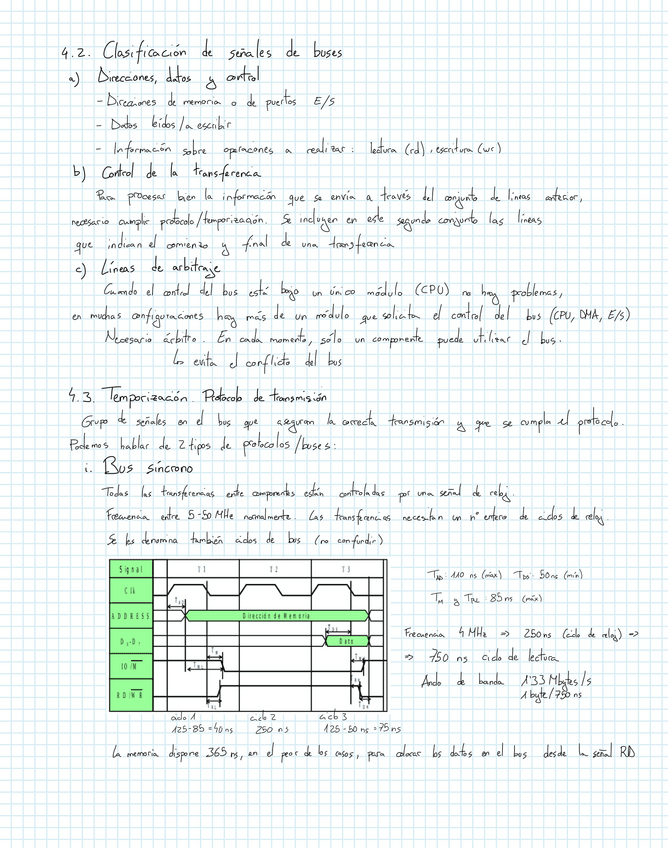 4.2. Clasificación de señales de buses
a) Direcciones, datos y control
- Direcciones de memoria o de puertos E/S
- Datos leídos/a escribir
- Información sobre operaciones a realizar: lectura (rd), escritura (wr)
b) Control de la transferencia
Para procesar bien la información que se envía a través del conjunto de líneas anterior,
necesario cumplir protocolo/temporización. Se incluyen en este segundo conjunto las líneas
que indican el comienzo y final de una transferencia
c) Líneas de arbitraje
Cuando el control del bus está bajo un único módulo (CPU) no hay problemas,
en muchas configuraciones hay más de un módulo que solicita el control del bus (CPU, DMA, E/S)
Necesario árbitro. En cada momento, sólo un componente puede utilizar el bus.
↳ evita el conflicto del bus
4.3. Temporización. Protocolo de transmisión
Grupo de señales en el bus que aseguran la correcta transmisión y que se cumpla el protocolo.
Podemos hablar de 2 tipos de protocolos/buses:
i. Bus síncrono
Todas las transferencias entre componentes están controladas por una señal de reloj.
Frecuencia entre 5-50 MHz normalmente. Las transferencias necesitan un nº entero de ciclos de reloj.
Se les denomina también ciclos de bus (no confundir)
Signal T1 T2 T3
Clk
ADDRESS TAD Dirección de Memoria
D0-D7 TDS Dato
IO/M TM
RD/WR TRL
TAD: 110 ns (max) TDS: 50ns (min)
TM y TRL: 85ns (máx)
Frecuencia 4 MHz => 250ns (ciclo de reloj) =>
=> 750 ns ciclo de lectura
Ancho de banda 1'33 Mbytes/s
1 byte/750 ns
ciclo 1 ciclo 2 ciclo 3
125-85=40 ns 250 ns 125-50 ns=75 ns
La memoria dispone 365 ns, en el peor de los casos, para colocar los datos en el bus desde la señal RD